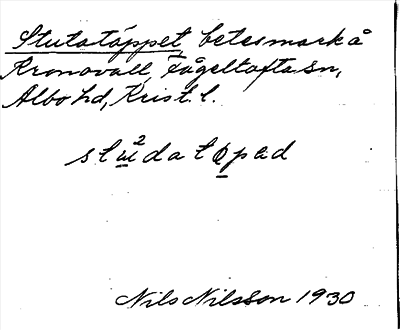 Stutatäppet, betesmark å
Kronovall, Fågeltofta sn,
Albo hd, Krist. l.
stu²datopad
Nils Nilsson 1930